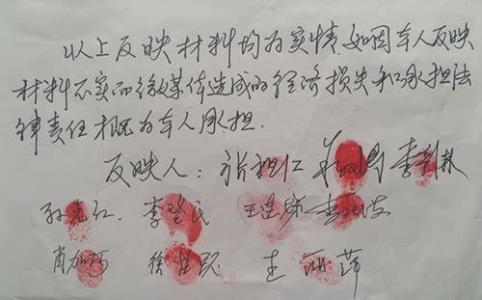 以上反映材料均为实情,如因本人反映
材料不实而给媒体造成的经济损失和承担法
律责任概为本人承担.
反映人: 张担仁 李
孙志红. 李登民 王连
肖 徐 王丽萍